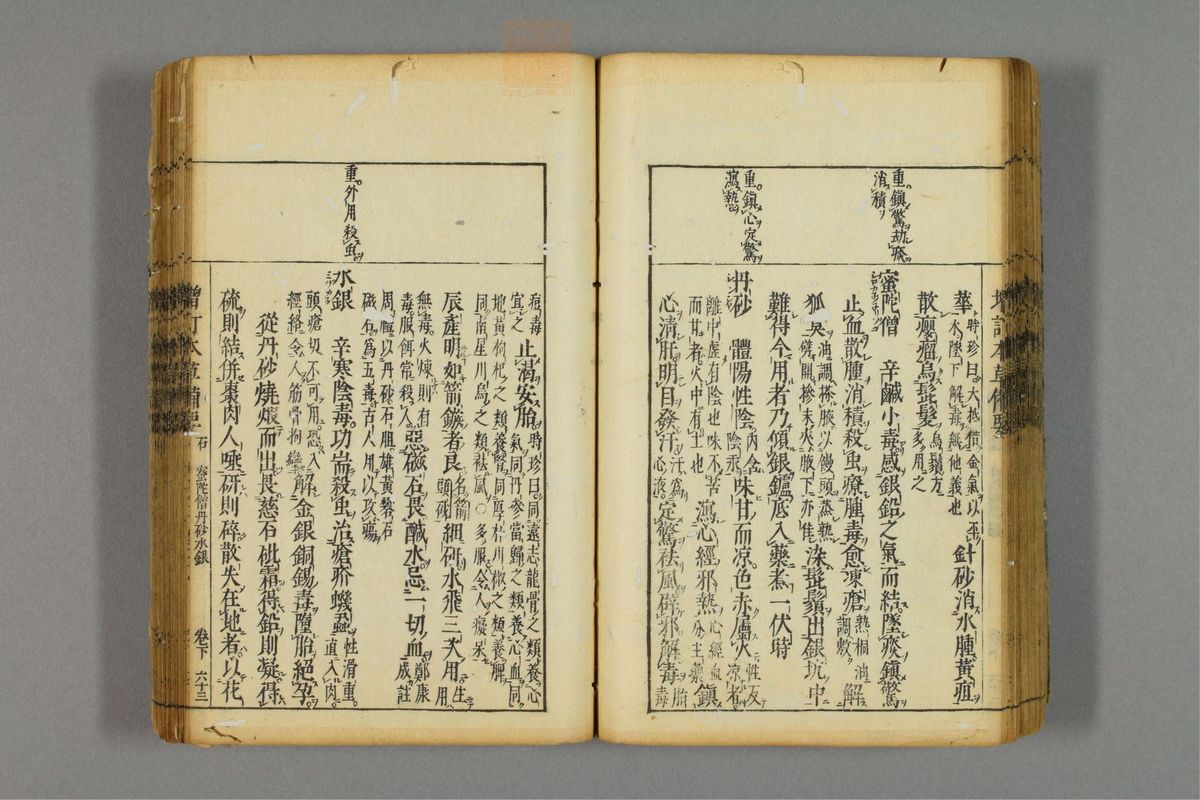 華
時珍曰大抵借金氣以平
木墜下解毒無他義也
針砂消水腫黃疸
散癭瘤烏髭髮
烏鬚方
多用之
重鎮驚劫痰
消積
蜜陀僧 辛鹹小毒感銀鉛之氣而結墜痰鎮驚
止血散腫消積殺虫療腫毒愈凍瘡
熱桐油
調敷
解
狐臭
油調搽腋以饅頭蒸熟
劈開摻末夾腋下亦佳
染髭鬚出銀坑中
難得今用者乃傾銀鑪底入藥煮一伏時
重鎮心定驚
瀉熱
丹砂 體陽性陰
內含
陰汞
味甘而凉色赤屬火
性反
凉者
離中虛有陰也味不苦
而甘者火中有土也
瀉心經邪熱
心經血
分主藥
鎮
心清肝明目發汗
汗爲
心液
定驚祛風辟邪解毒
胎毒
痘毒
止渴安胎
時珍曰同遠志龍骨之類養心
氣同丹參當歸之類養心血同
地黃枸杞之類養腎同厚朴川椒之類養脾
同南星川烏之類祛風○多服令人癡呆
宜之
辰產明如箭鏃者良
名箭
頭砂
細研水飛三次用
生用
無毒火煉則有
毒服餌常殺人
惡磁石畏鹹水忌一切血
鄭康
成註
周禮以丹砂石膽雄黃礬石
磁石爲五毒古人用以攻瘍
重外用殺虫
水銀 辛寒陰毒功耑殺虫治瘡疥蟣蝨
性滑重
直入肉
頭瘡切不可用恐入
經絡令人筋骨拘攣
解金銀銅錫毒墮胎絕孕
從丹砂燒煅而出畏慈石砒霜得鉛則凝得
硫則結併棗肉人唾研則碎散失在地者以花
石 蜜陀僧丹砂水銀
卷下 六十三